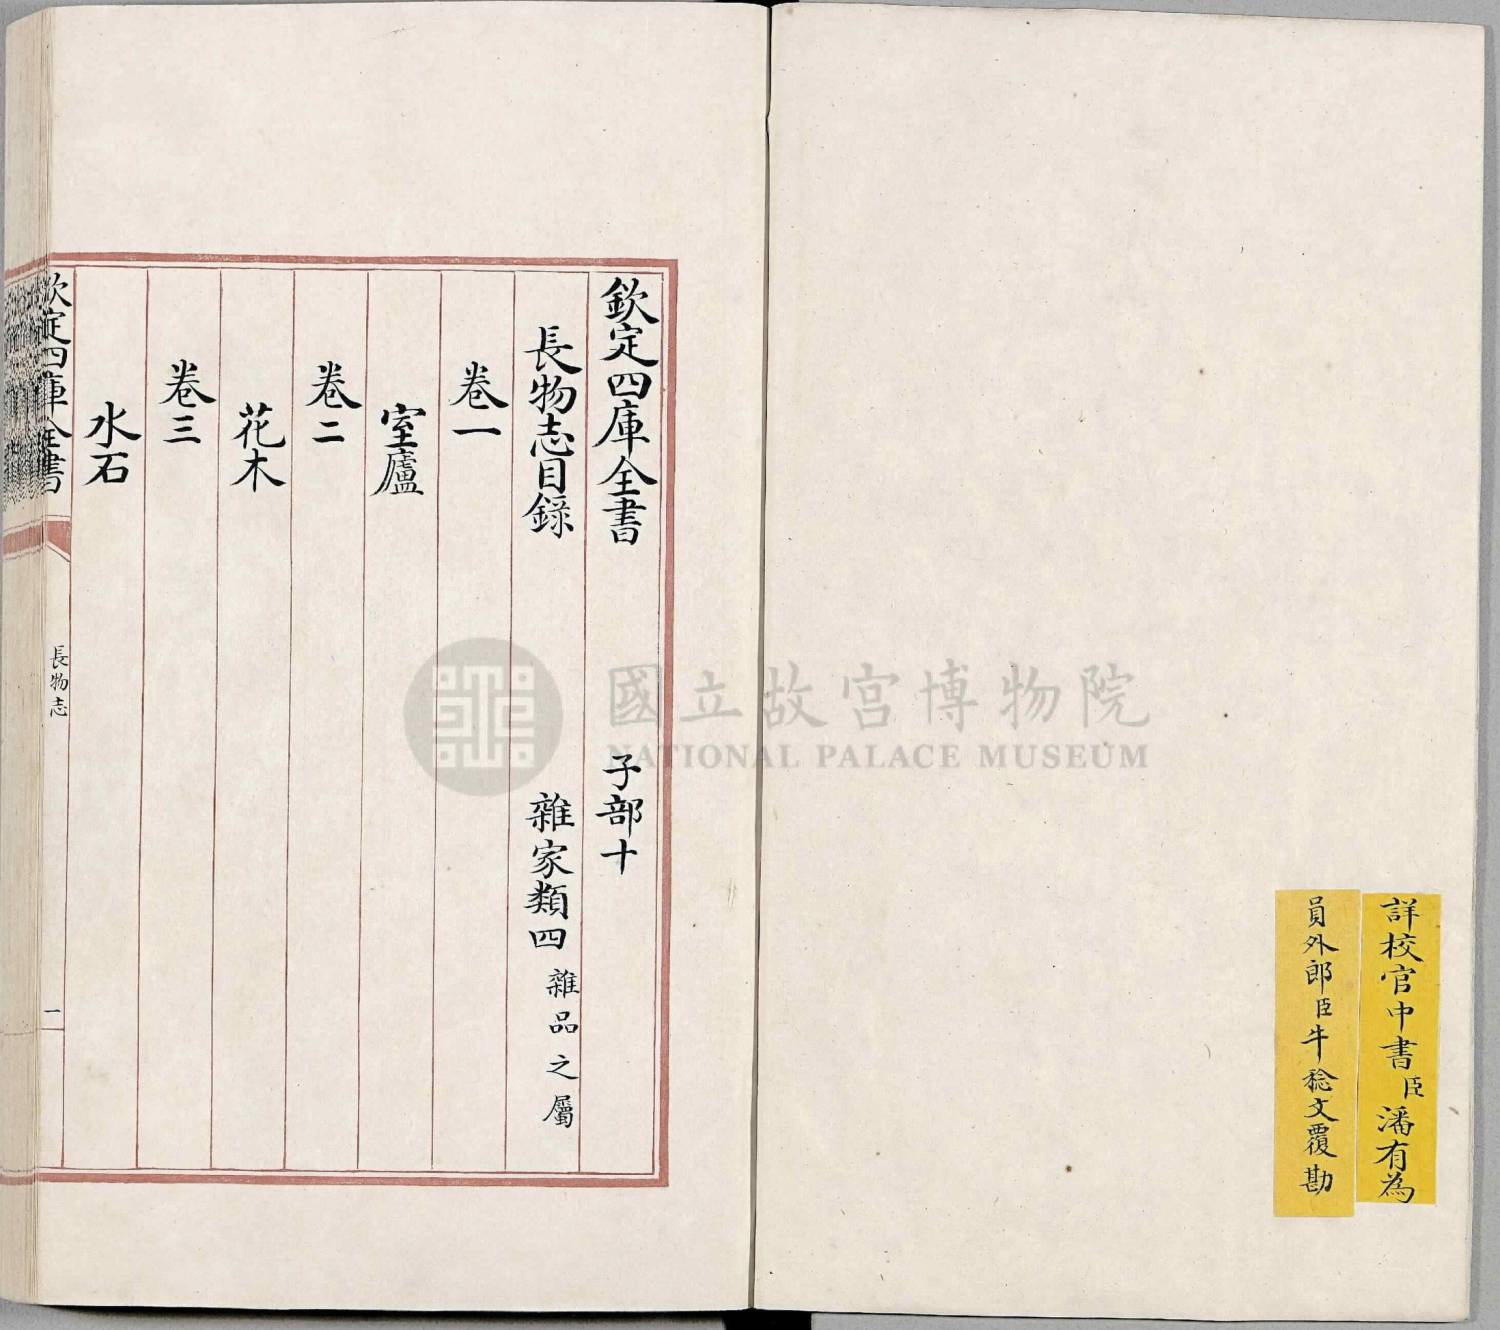 詳校官中書臣潘有為
員外郎臣牛稔文覆勘
欽定四庫全書 子部十
長物志目錄 雜家類四 雜品之屬
卷一
室廬
卷二
花木
卷三
水石
欽定四庫全書 長物志 一
國立故宮博物院
NATIONAL PALACE MUSEUM